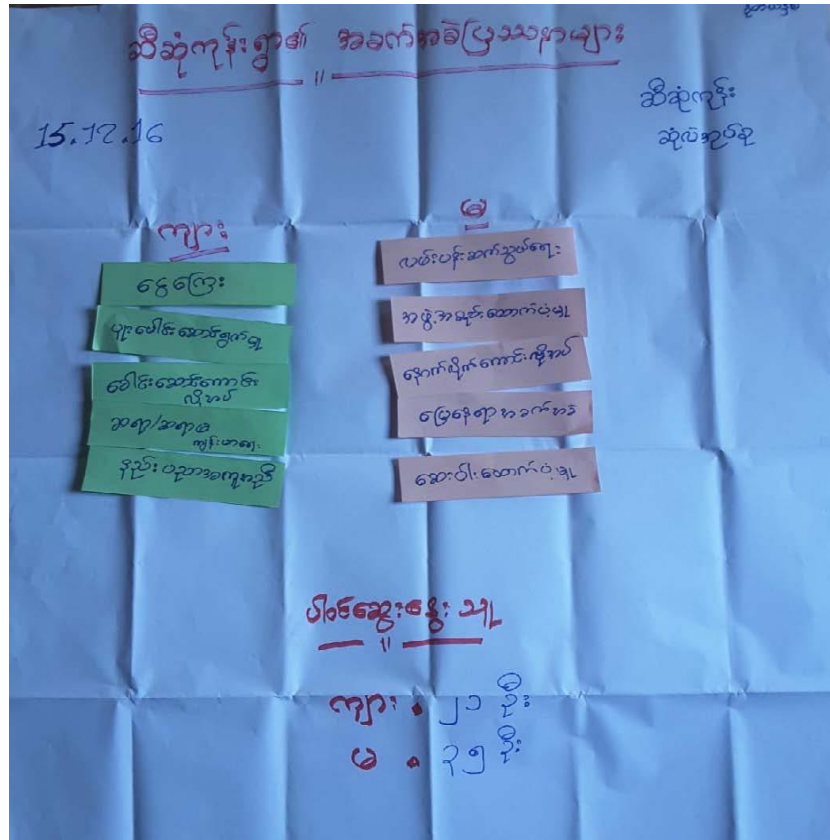 ဆီဆုံကုန်းရွာ၏ အခက်အခဲပြဿနာများ
15.12.16
ဆီဆုံကုန်း
ဆုံလဲအုပ်စု
ကျား
ငွေကြေး
ပူးပေါင်းဆောင်ရွက်မှု
ခေါင်းဆောင်ကောင်း
လိုအပ်
ဆရာ/ဆရာမ
ကျန်းမာရေး
နည်းပညာအကူအညီ
မ
လမ်းပန်းဆက်သွယ်ရေး
အဖွဲ့အစည်းထောက်ပံ့မှု
နောက်လိုက်ကောင်းလိုအပ်
မြေနေရာအခက်အခဲ
ဆေးဝါးထောက်ပံ့မှု
ပါဝင်ဆွေးနွေးသူ
ကျား . ၂၁ ဦး
မ . ၃၅ ဦး